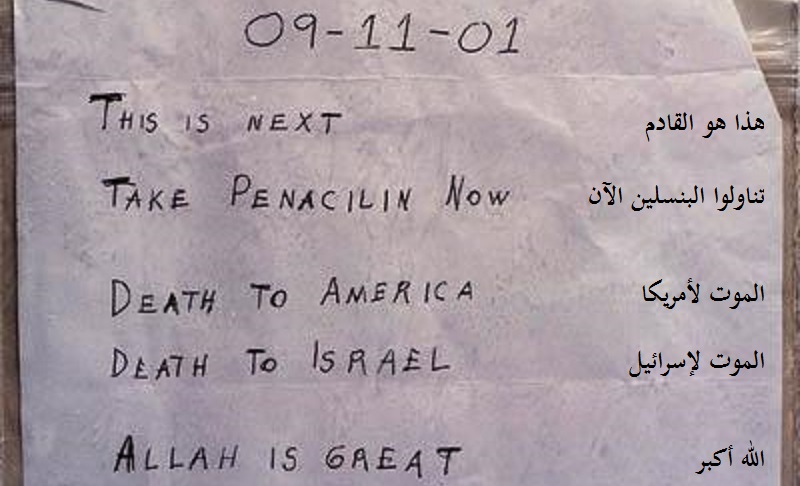 09-11-01
THIS IS NEXT هذا هو القادم
TAKE PENACILIN NOW تناولوا البنسلين الآن
DEATH TO AMERICA الموت لأمريكا
DEATH TO ISRAEL الموت لإسرائيل
ALLAH IS GREAT الله أكبر